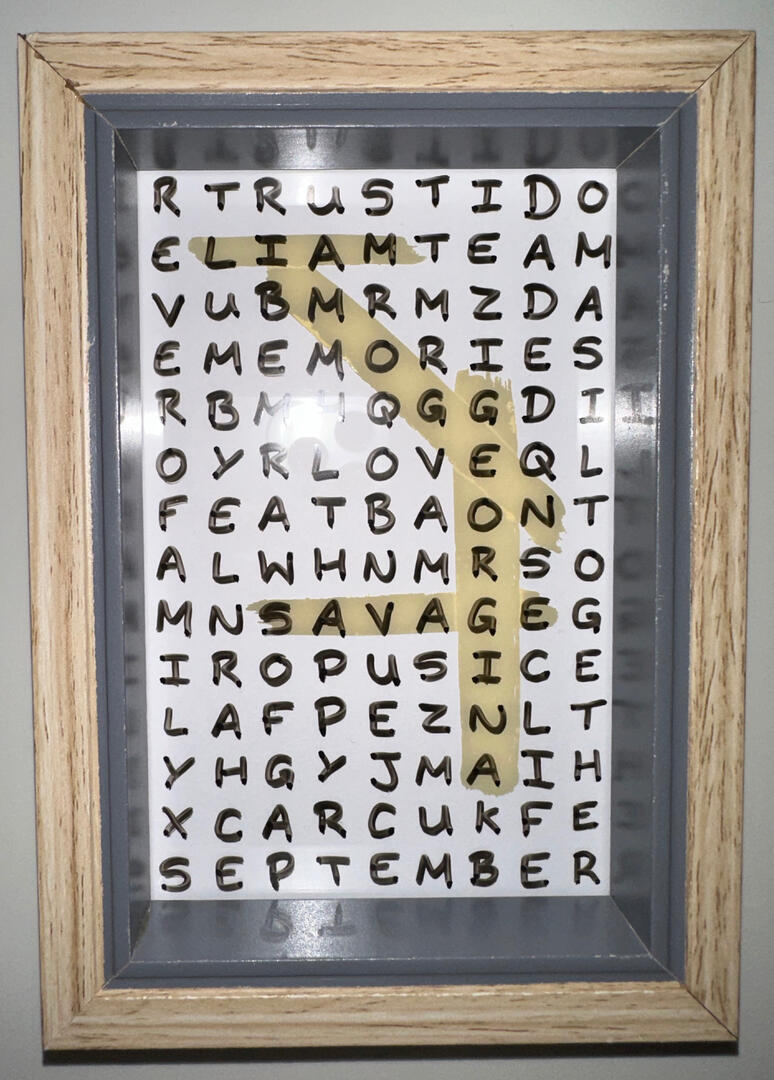 R T R U S T I D O
E L I A M T E A M
V U B M R M Z D A
E M E M O R I E S
R B M H Q G G D I
O Y R L O V E Q L
F E A T B A O N T
A L W H N M R S O
M N S A V A G E G
I R O P U S I C E
L A F P E Z N L T
Y H G Y J M A I H
X C A R C U K F E
S E P T E M B E R